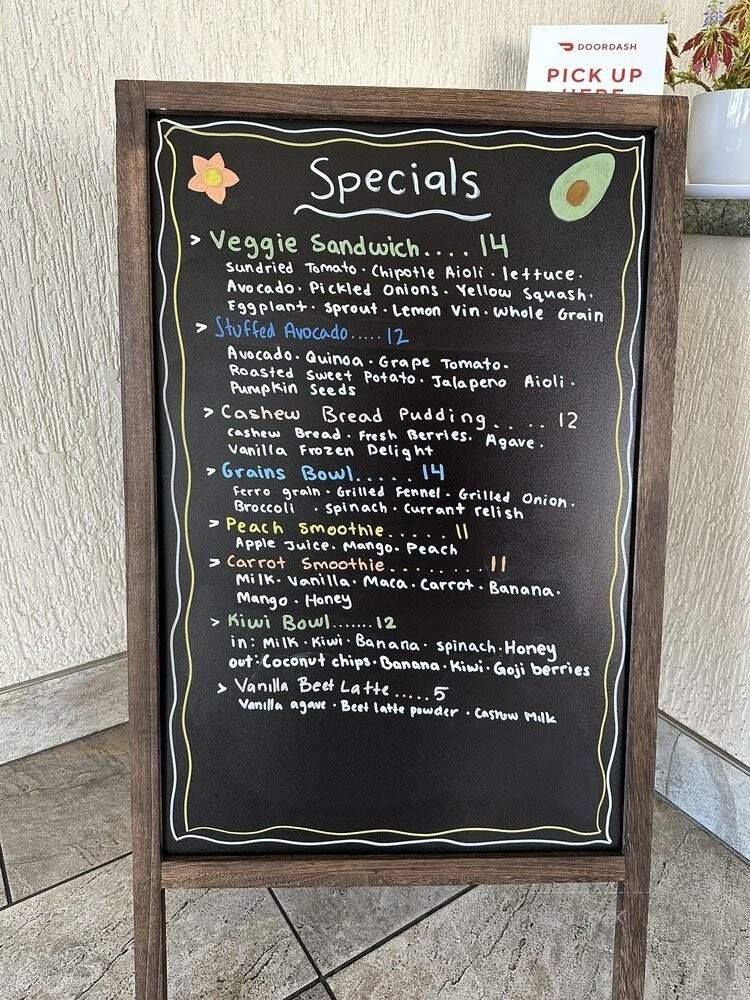 DOORDASH
PICK UP
HERE
Specials
> Veggie Sandwich.... 14
Sundried Tomato · Chipotle Aioli · lettuce ·
Avocado · Pickled Onions · Yellow Squash ·
Eggplant · sprout · Lemon Vin · Whole Grain
> Stuffed Avocado..... 12
Avocado · Quinoa · Grape Tomato ·
Roasted Sweet Potato · Jalapeno Aioli ·
Pumpkin Seeds
> Cashew Bread Pudding. . . .. 12
Cashew Bread · Fresh Berries · Agave ·
Vanilla Frozen Delight
> Grains Bowl...... 14
Ferro grain · Grilled Fennel · Grilled Onion ·
Broccoli · spinach · currant relish
> Peach Smoothie...... 11
Apple Juice · Mango · Peach
> Carrot Smoothie......... 11
Milk · Vanilla · Maca · Carrot · Banana ·
Mango · Honey
> Kiwi Bowl.......12
in: Milk · Kiwi · Banana · spinach · Honey
out: Coconut chips · Banana · Kiwi · Goji berries
> Vanilla Beet Latte ..... 5
Vanilla agave · Beet latte powder · Cashew Milk